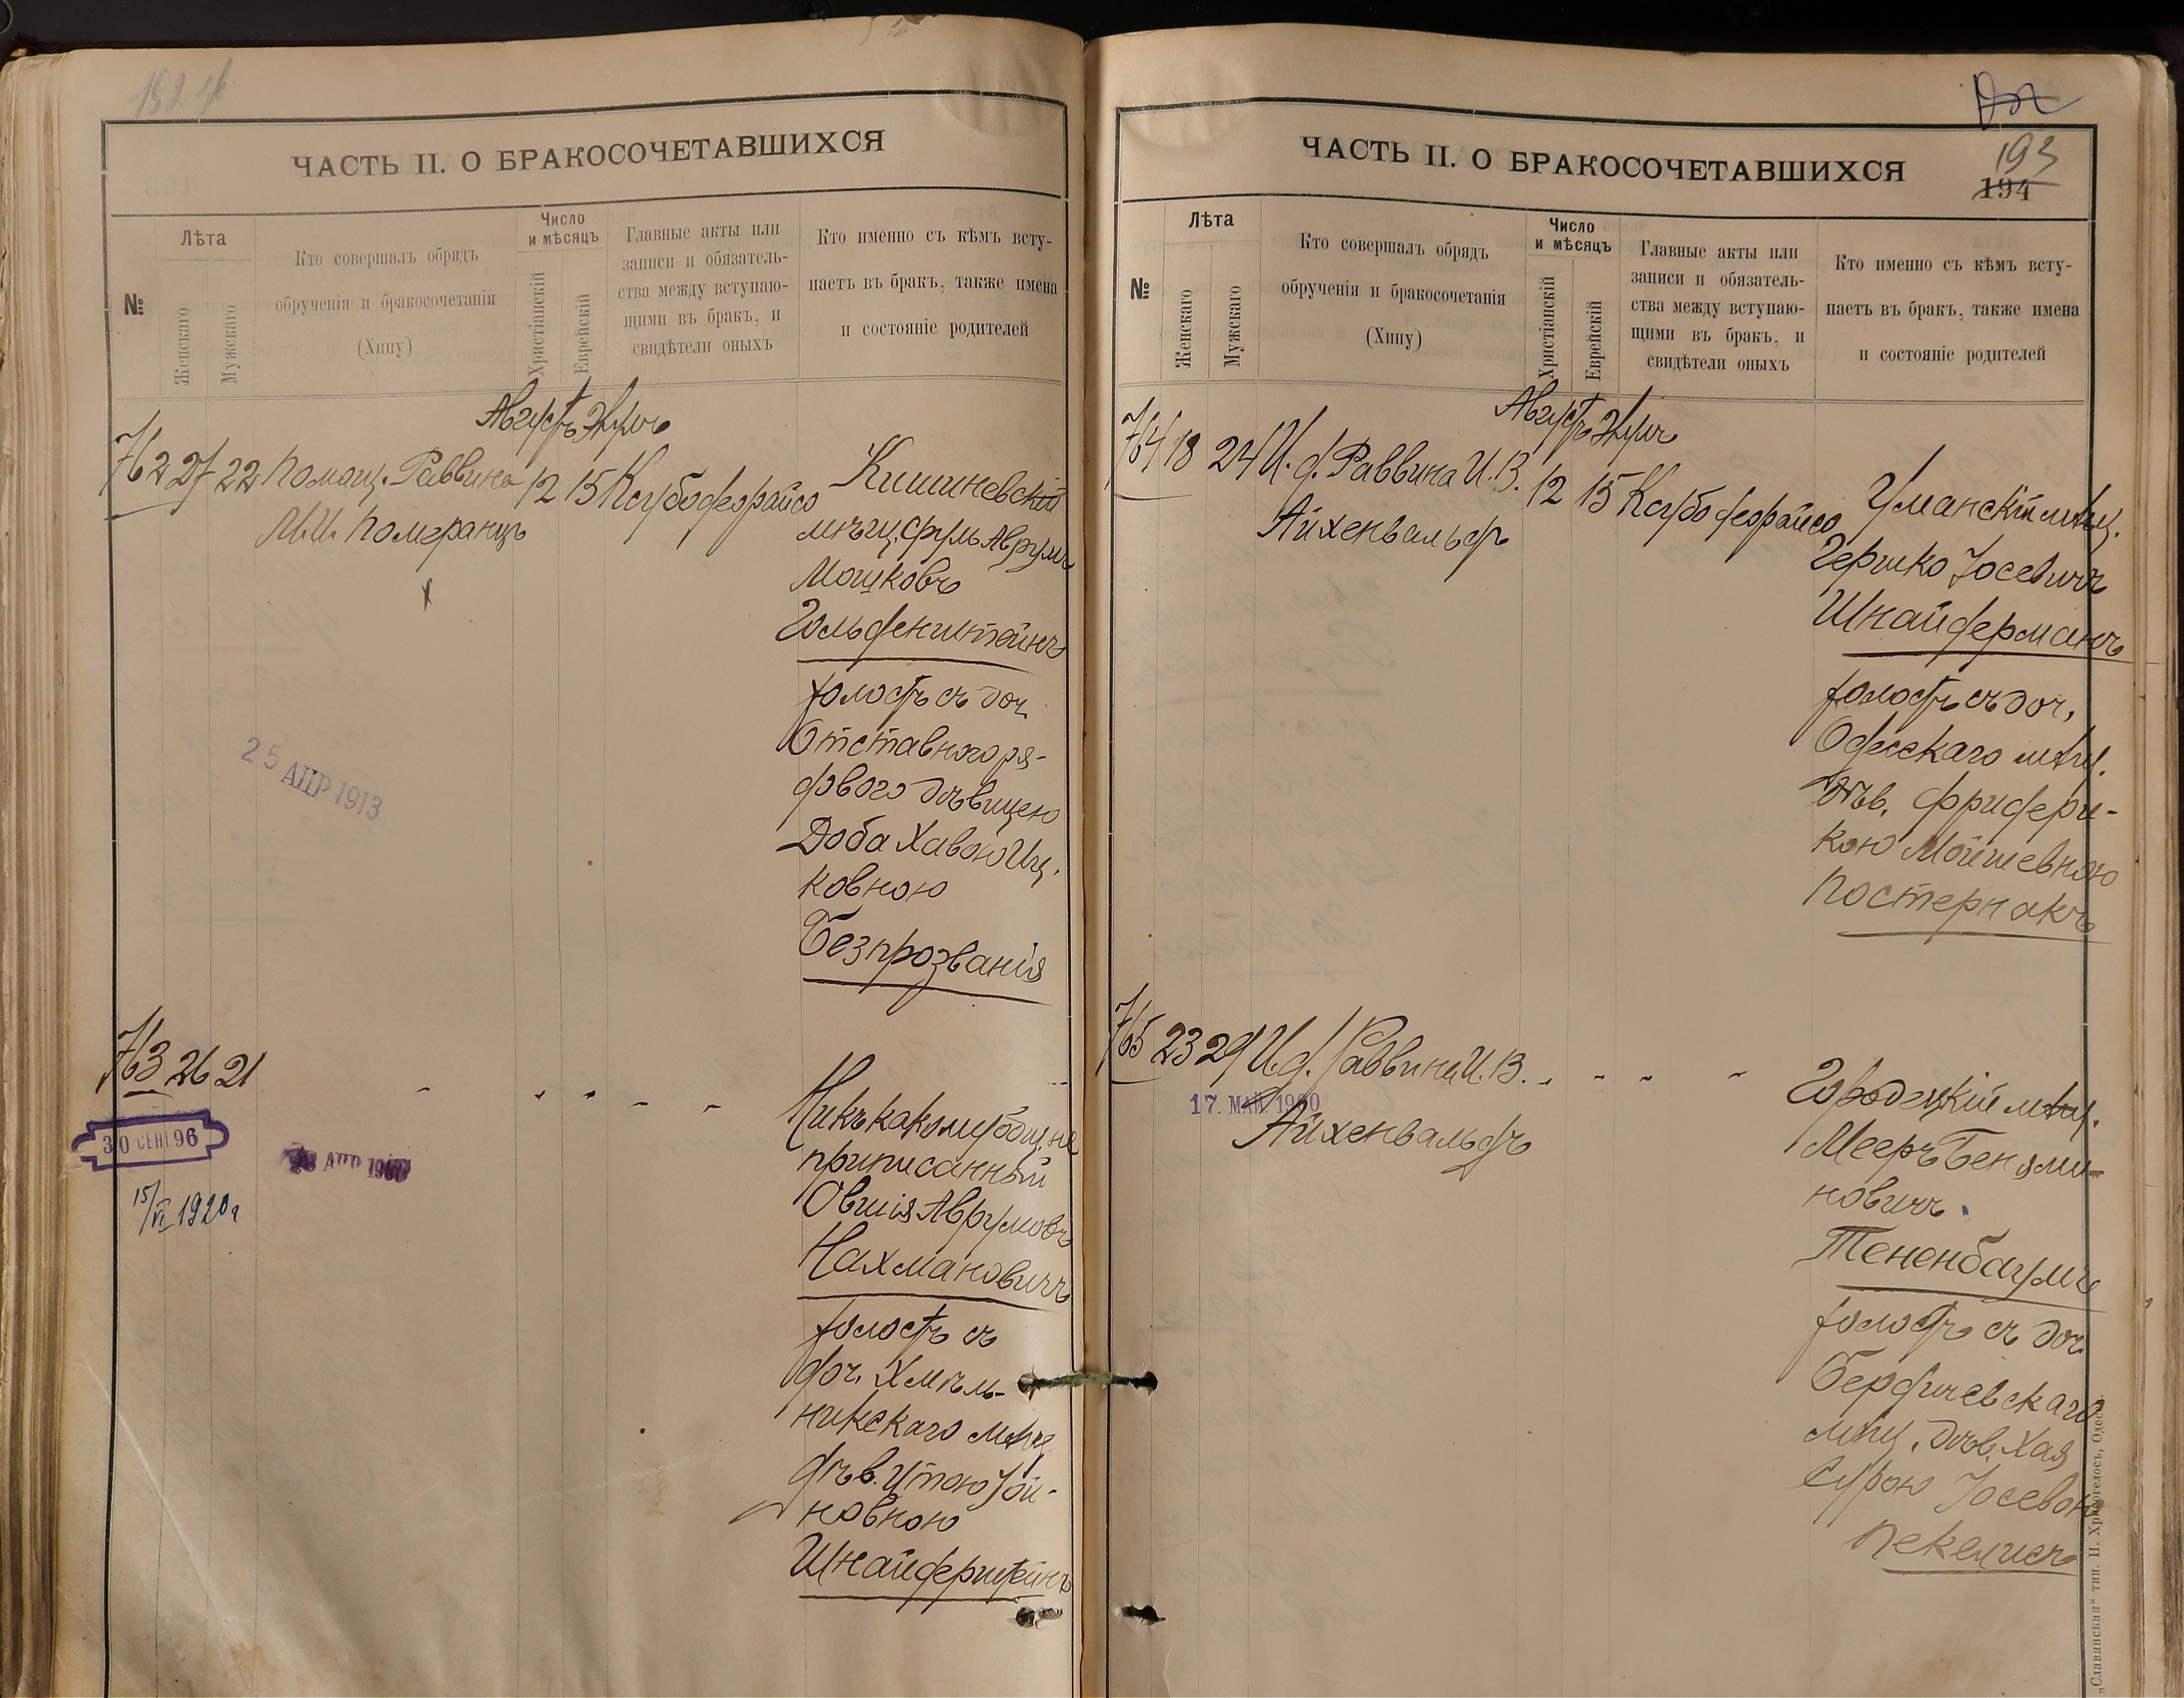 192 об
ЧАСТЬ II. О БРАКОСОЧЕТАВШИХСЯ
№
Лѣта
Женскаго
Мужскаго
Кто совершалъ обрядъ
обрученія и бракосочетанія
(Хипу)
Число
и мѣсяцъ
Христіанскій
Еврейскій
Главные акты или
записи и обязатель-
ства между вступаю-
щими въ бракъ, и
свидѣтели оныхъ
Кто именно съ кѣмъ всту-
паетъ въ бракъ, также имена
и состояніе родителей
Августъ Элулъ
762 27 22 Помощ. Раввина 12 15 Ксубо деорайсо
М.И. Померанцъ
Кишиневскій
мѣщ. Сруль Аврумъ
Мошковъ
Гольденштейнъ
холостъ съ доч.
Отставного ря-
дового дѣвицею
Доба Хавою Иц-
ковною
Безпрозванія
25 АПР 1913
763 26 21 - " " - -
30 СЕН 96
АПР
15/VI 1920 г
Ни къ какому общ. не
приписанный
Овшія Аврумовъ
Нахмановичъ
холостъ съ
доч. Хмѣль-
никскаго мѣщ
дѣв. Итою Іой-
новною
Шнайдерштейнъ
ЧАСТЬ II. О БРАКОСОЧЕТАВШИХСЯ
193
194
№
Лѣта
Женскаго
Мужскаго
Кто совершалъ обрядъ
обрученія и бракосочетанія
(Хипу)
Число
и мѣсяцъ
Христіанскій
Еврейскій
Главные акты или
записи и обязатель-
ства между вступаю-
щими въ бракъ, и
свидѣтели оныхъ
Кто именно съ кѣмъ всту-
паетъ въ бракъ, также имена
и состояніе родителей
Августъ Элулъ
764 18 24 И. д. Раввина И. В. 12 15 Ксубо деорайсо
Айхенвальдъ
Уманскій мѣщ.
Гершко Іосевичъ
Шнайдерманъ
холостъ съ доч,
Одесскаго мѣщ.
дѣв. Фридери-
кою Мойшевною
Постернакъ
765 23 29 И. д. Раввина И. В. - - - -
17. МАЙ 1900
Айхенвальдъ
Городецкій мѣщ.
Мееръ Беньями-
новичъ
Тененбаумъ
холостъ съ доч
Бердичевскаго
мѣщ. дѣв. Хая
Сурою Іосевон
Пекелисъ
„Славянская“ тип. Н. Хрисогелосъ, Одесса.